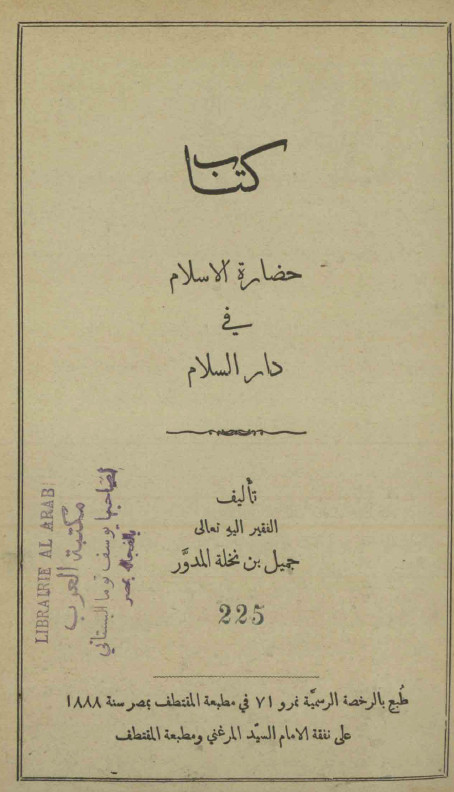 كتاب
حضارة الاسلام
في
دار السلام
تأليف
الفقير اليهِ تعالى
جميل بن نخلة المدوَّر
225
طُبع بالرخصة الرسميَّة نمرو ٧١ في مطبعة المقتطف بمصر سنة ١٨٨٨
على نفقة الامام السيّد المرغني ومطبعة المقتطف
LIBRAIRIE AL ARAB
مكتبة العرب
لصاحبها يوسف توما البستاني
بالفجالة بمصر